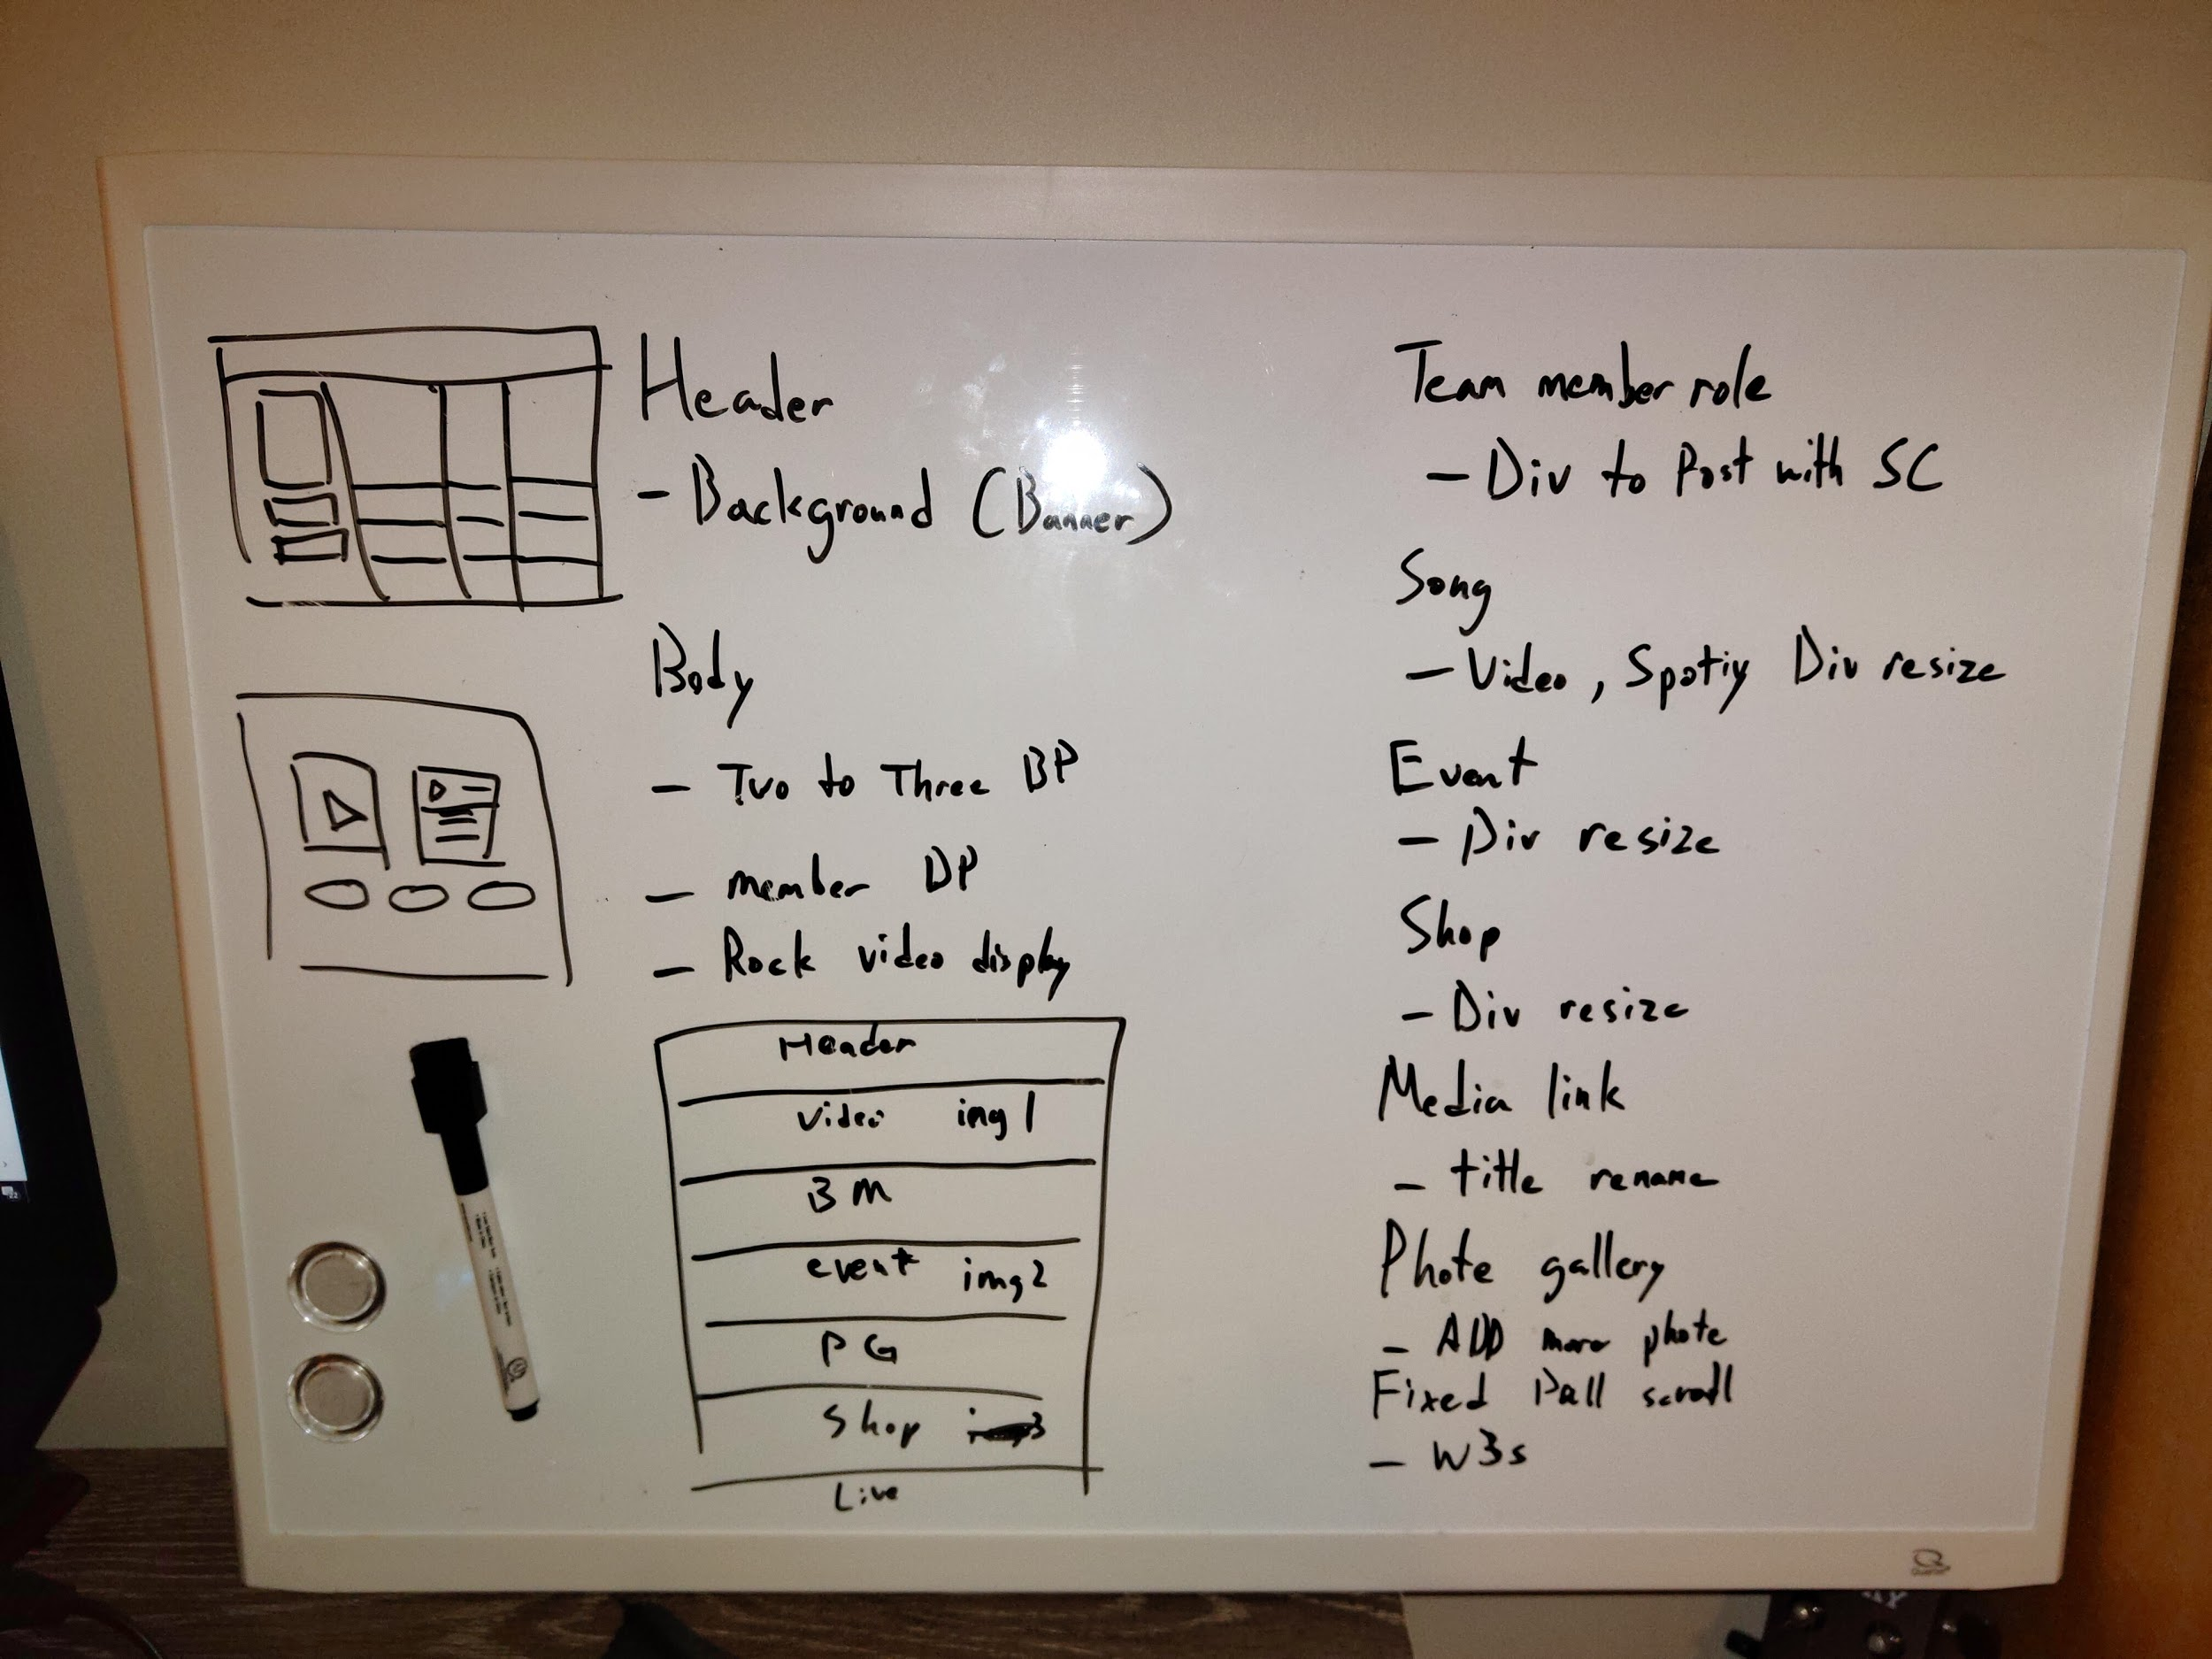 Header
- Background (Banner)
Body
- Two to Three BP
- member DP
- Rock video display
Header
video img 1
BM
event img2
PG
Shop
Live
Team member role
- Div to Post with SC
Song
- Video, Spotiy Div resize
Event
- Div resize
Shop
- Div resize
Media link
- title rename
Phote gallery
- ADD more phote
Fixed scroll
- W3s